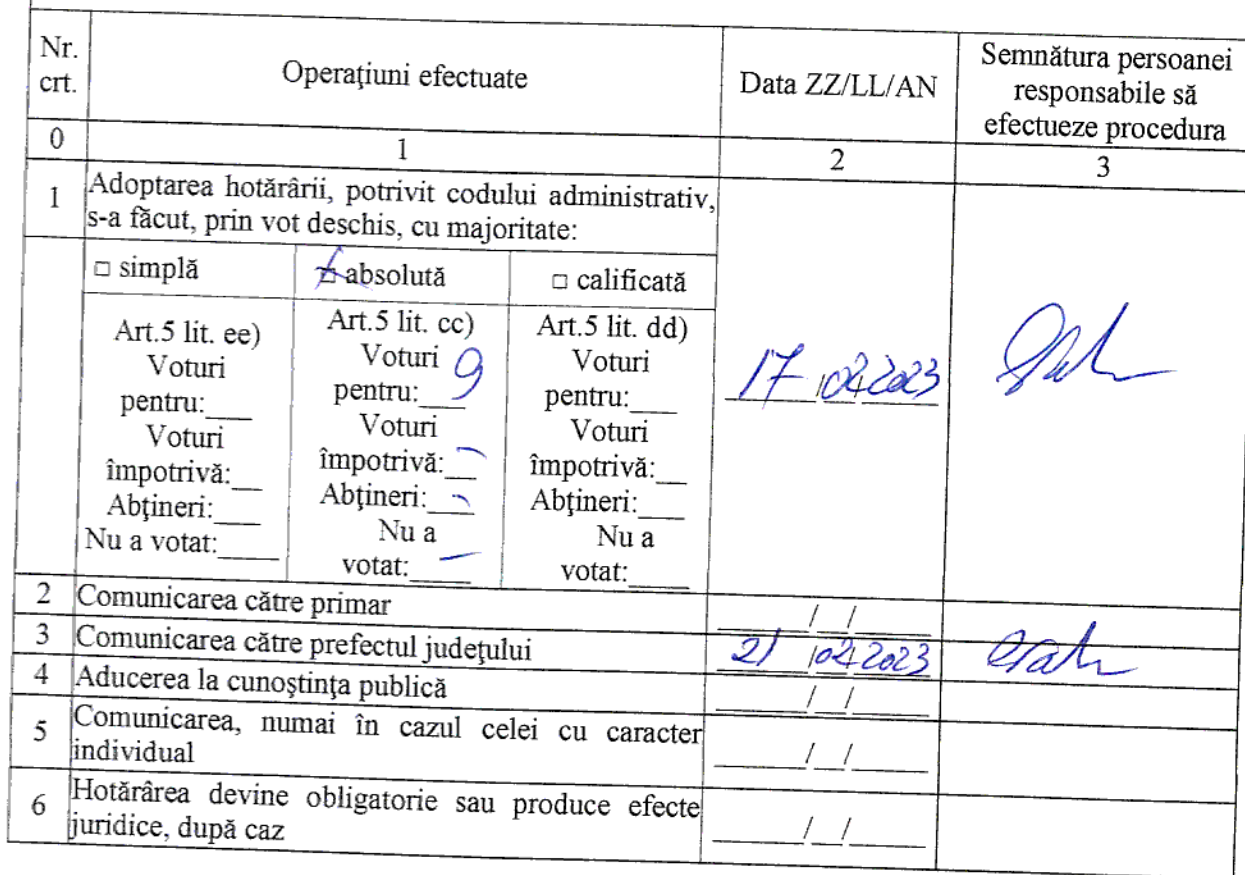 Nr. crt.
Operaţiuni efectuate
Data ZZ/LL/AN
Semnătura persoanei
responsabile să
efectueze procedura
0
1
2
3
1
Adoptarea hotărârii, potrivit codului administrativ,
s-a făcut, prin vot deschis, cu majoritate:
□ simplă
□ absolută
□ calificată
Art.5 lit. ee)
Voturi
pentru:___
Voturi
împotrivă:__
Abţineri:___
Nu a votat:____
Art.5 lit. cc)
Voturi
pentru: 9
Voturi
împotrivă: -
Abţineri: -
Nu a
votat: -
Art.5 lit. dd)
Voturi
pentru:___
Voturi
împotrivă:__
Abţineri:___
Nu a
votat:____
17/02/2023
2
Comunicarea către primar
____/__/____
3
Comunicarea către prefectul judeţului
21/02/2023
4
Aducerea la cunoştinţa publică
____/__/____
5
Comunicarea, numai în cazul celei cu caracter
individual
____/__/____
6
Hotărârea devine obligatorie sau produce efecte
juridice, după caz
____/__/____